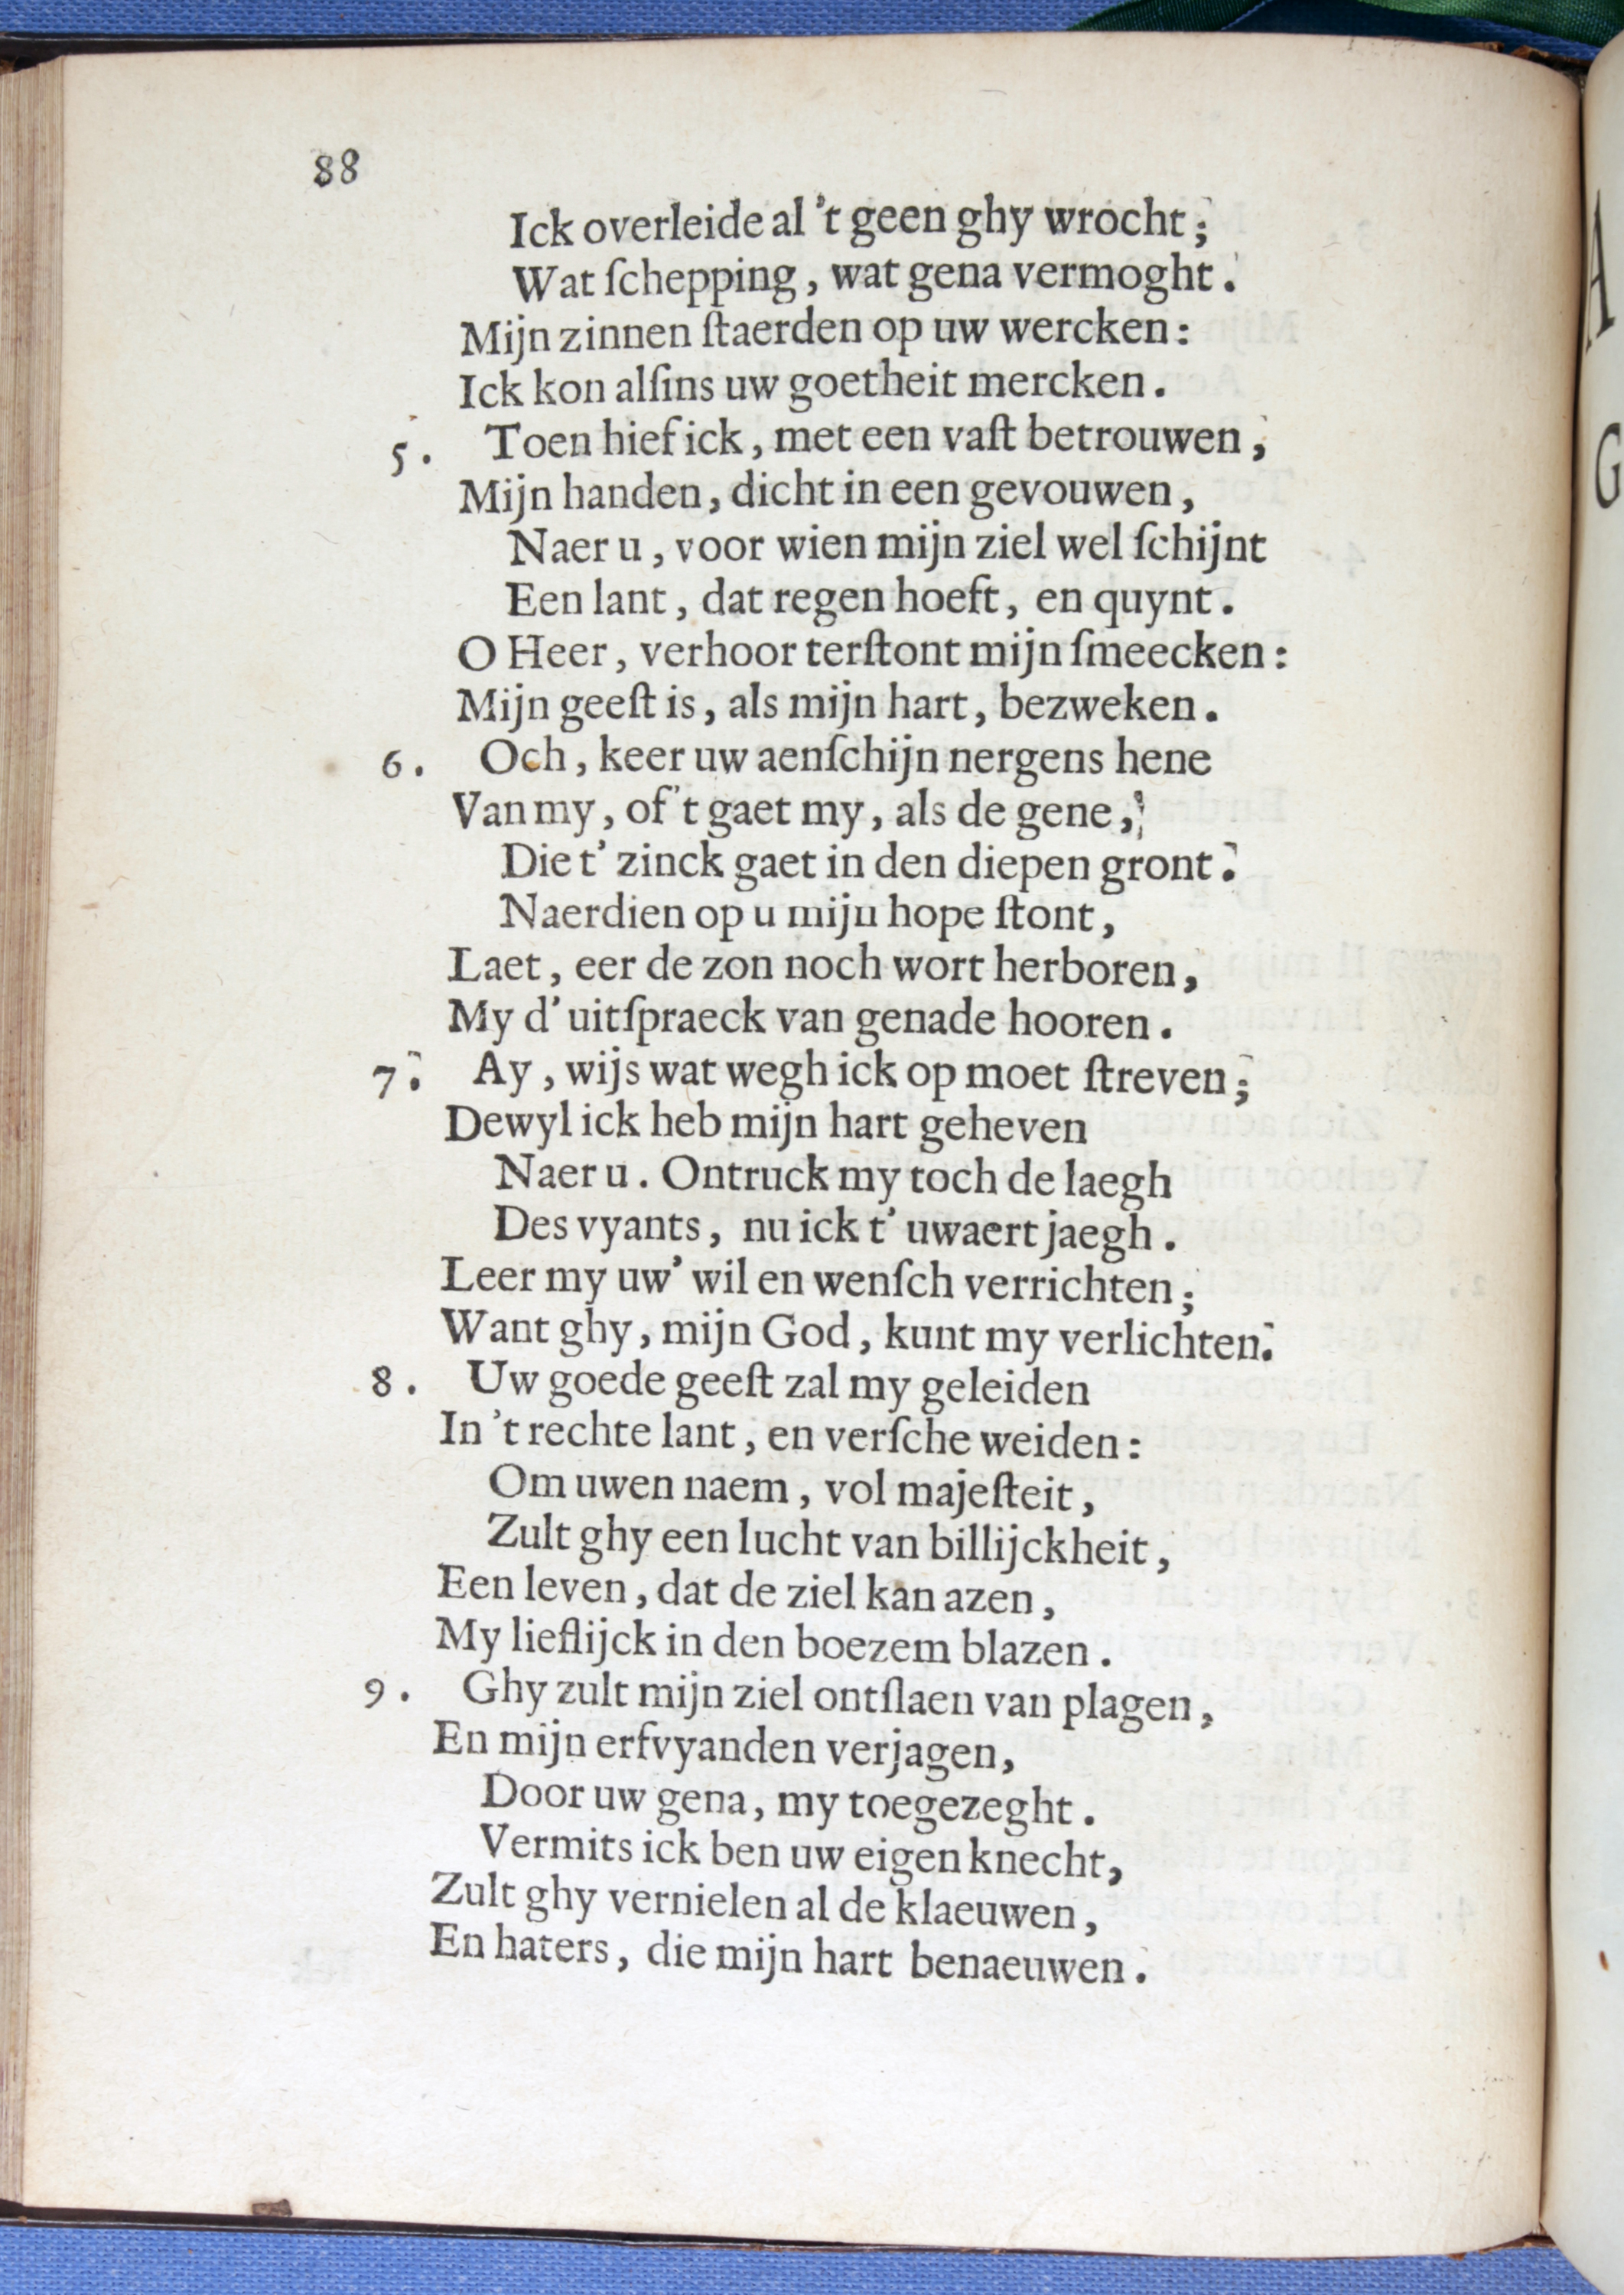 88
Ick overleide al 't geen ghy wrocht;
Wat ſchepping, wat gena vermoght.
Mijn zinnen ſtaerden op uw wercken:
Ick kon alſins uw goetheit mercken.
5. Toen hief ick, met een vaſt betrouwen,
Mijn handen, dicht in een gevouwen,
Naer u, voor wien mijn ziel wel ſchijnt
Een lant, dat regen hoeft, en quynt.
O Heer, verhoor terſtont mijn ſmeecken:
Mijn geeſt is, als mijn hart, bezweken.
6. Och, keer uw aenſchijn nergens hene
Van my, of 't gaet my, als de gene,
Die t' zinck gaet in den diepen gront.
Naerdien op u mijn hope ſtont,
Laet, eer de zon noch wort herboren,
My d' uitſpraeck van genade hooren.
7. Ay, wijs wat wegh ick op moet ſtreven;
Dewyl ick heb mijn hart geheven
Naer u. Ontruck my toch de laegh
Des vyants, nu ick t' uwaert jaegh.
Leer my uw' wil en wenſch verrichten;
Want ghy, mijn God, kunt my verlichten.
8. Uw goede geeſt zal my geleiden
In 't rechte lant, en verſche weiden:
Om uwen naem, vol majeſteit,
Zult ghy een lucht van billijckheit,
Een leven, dat de ziel kan azen,
My lieflijck in den boezem blazen.
9. Ghy zult mijn ziel ontſlaen van plagen,
En mijn erfvyanden verjagen,
Door uw gena, my toegezeght.
Vermits ick ben uw eigen knecht,
Zult ghy vernielen al de klaeuwen,
En haters, die mijn hart benaeuwen.
A
G